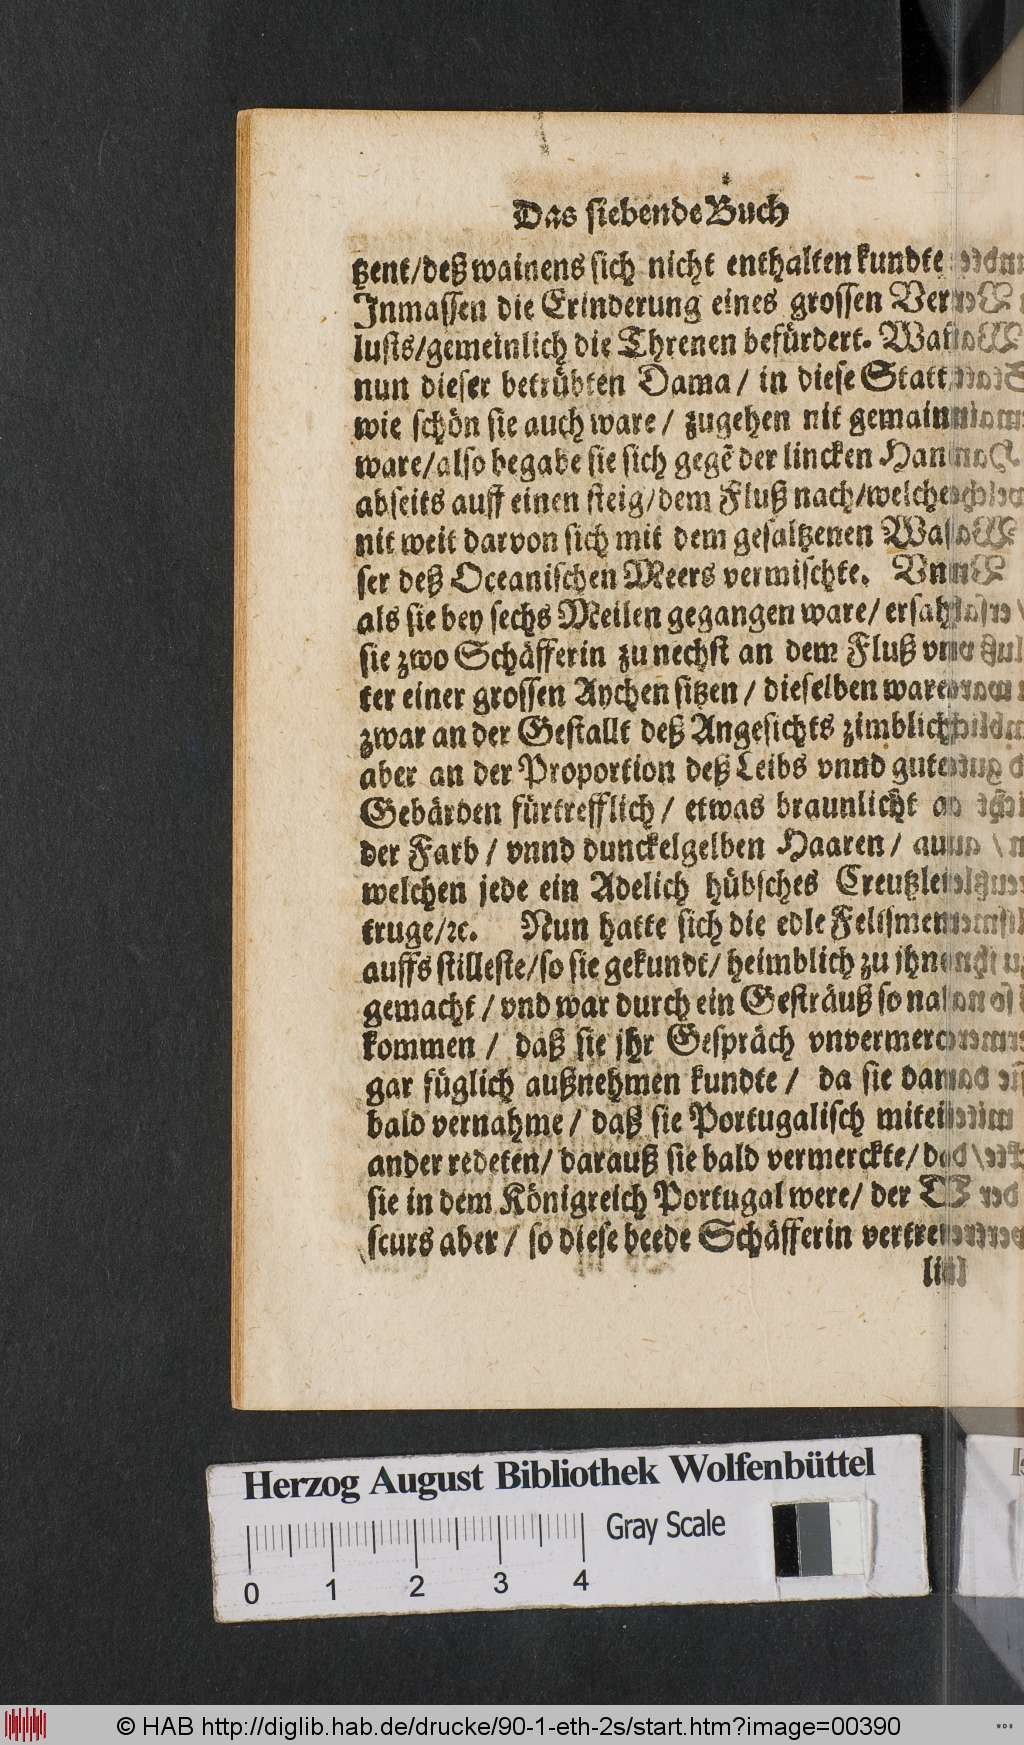 Das siebende Buch
tzent/deß wainens sich nicht enthalten kundte
Inmassen die Erinderung eines grossen Ver
lusts/gemeinlich die Threnen befürdert. Was
nun dieser betrübten Dama / in diese Statt
wie schön sie auch ware / zugehen nit gemain
ware/also begabe sie sich gegẽ der lincken Han
abseits auff einen steig/dem Fluß nach/welche
nit weit darvon sich mit dem gesaltzenen Was
ser deß Oceanischen Meers vermischte. Vnn
als sie bey sechs Meilen gegangen ware/ ersah
sie zwo Schäfferin zu nechst an dem Fluß vn
ter einer grossen Aychen sitzen / dieselben ware
zwar an der Gestallt deß Angesichts zimblich
aber an der Proportion deß Leibs vnnd gute
Gebärden fürtrefflich / etwas braunlicht an
der Farb / vnnd dunckelgelben Haaren / an
welchen jede ein Adelich hübsches Creutzle
truge/ꝛc. Nun hatte sich die edle Felismen
auffs stilleste/so sie gekundt/ heimblich zu jhn
gemacht / vnd war durch ein Gesträuß so na
kommen / daß sie jhr Gespräch vnvermerc
gar füglich außnehmen kundte / da sie dann
bald vernahme / daß sie Portugalisch mitei
ander redeten/ darauß sie bald vermerckte/ da
sie in dem Königreich Portugal were/ der D
scurs aber / so diese beede Schäfferin vertre
lil
Herzog August Bibliothek Wolfenbüttel
Gray Scale
0 1 2 3 4
© HAB http://diglib.hab.de/drucke/90-1-eth-2s/start.htm?image=00390